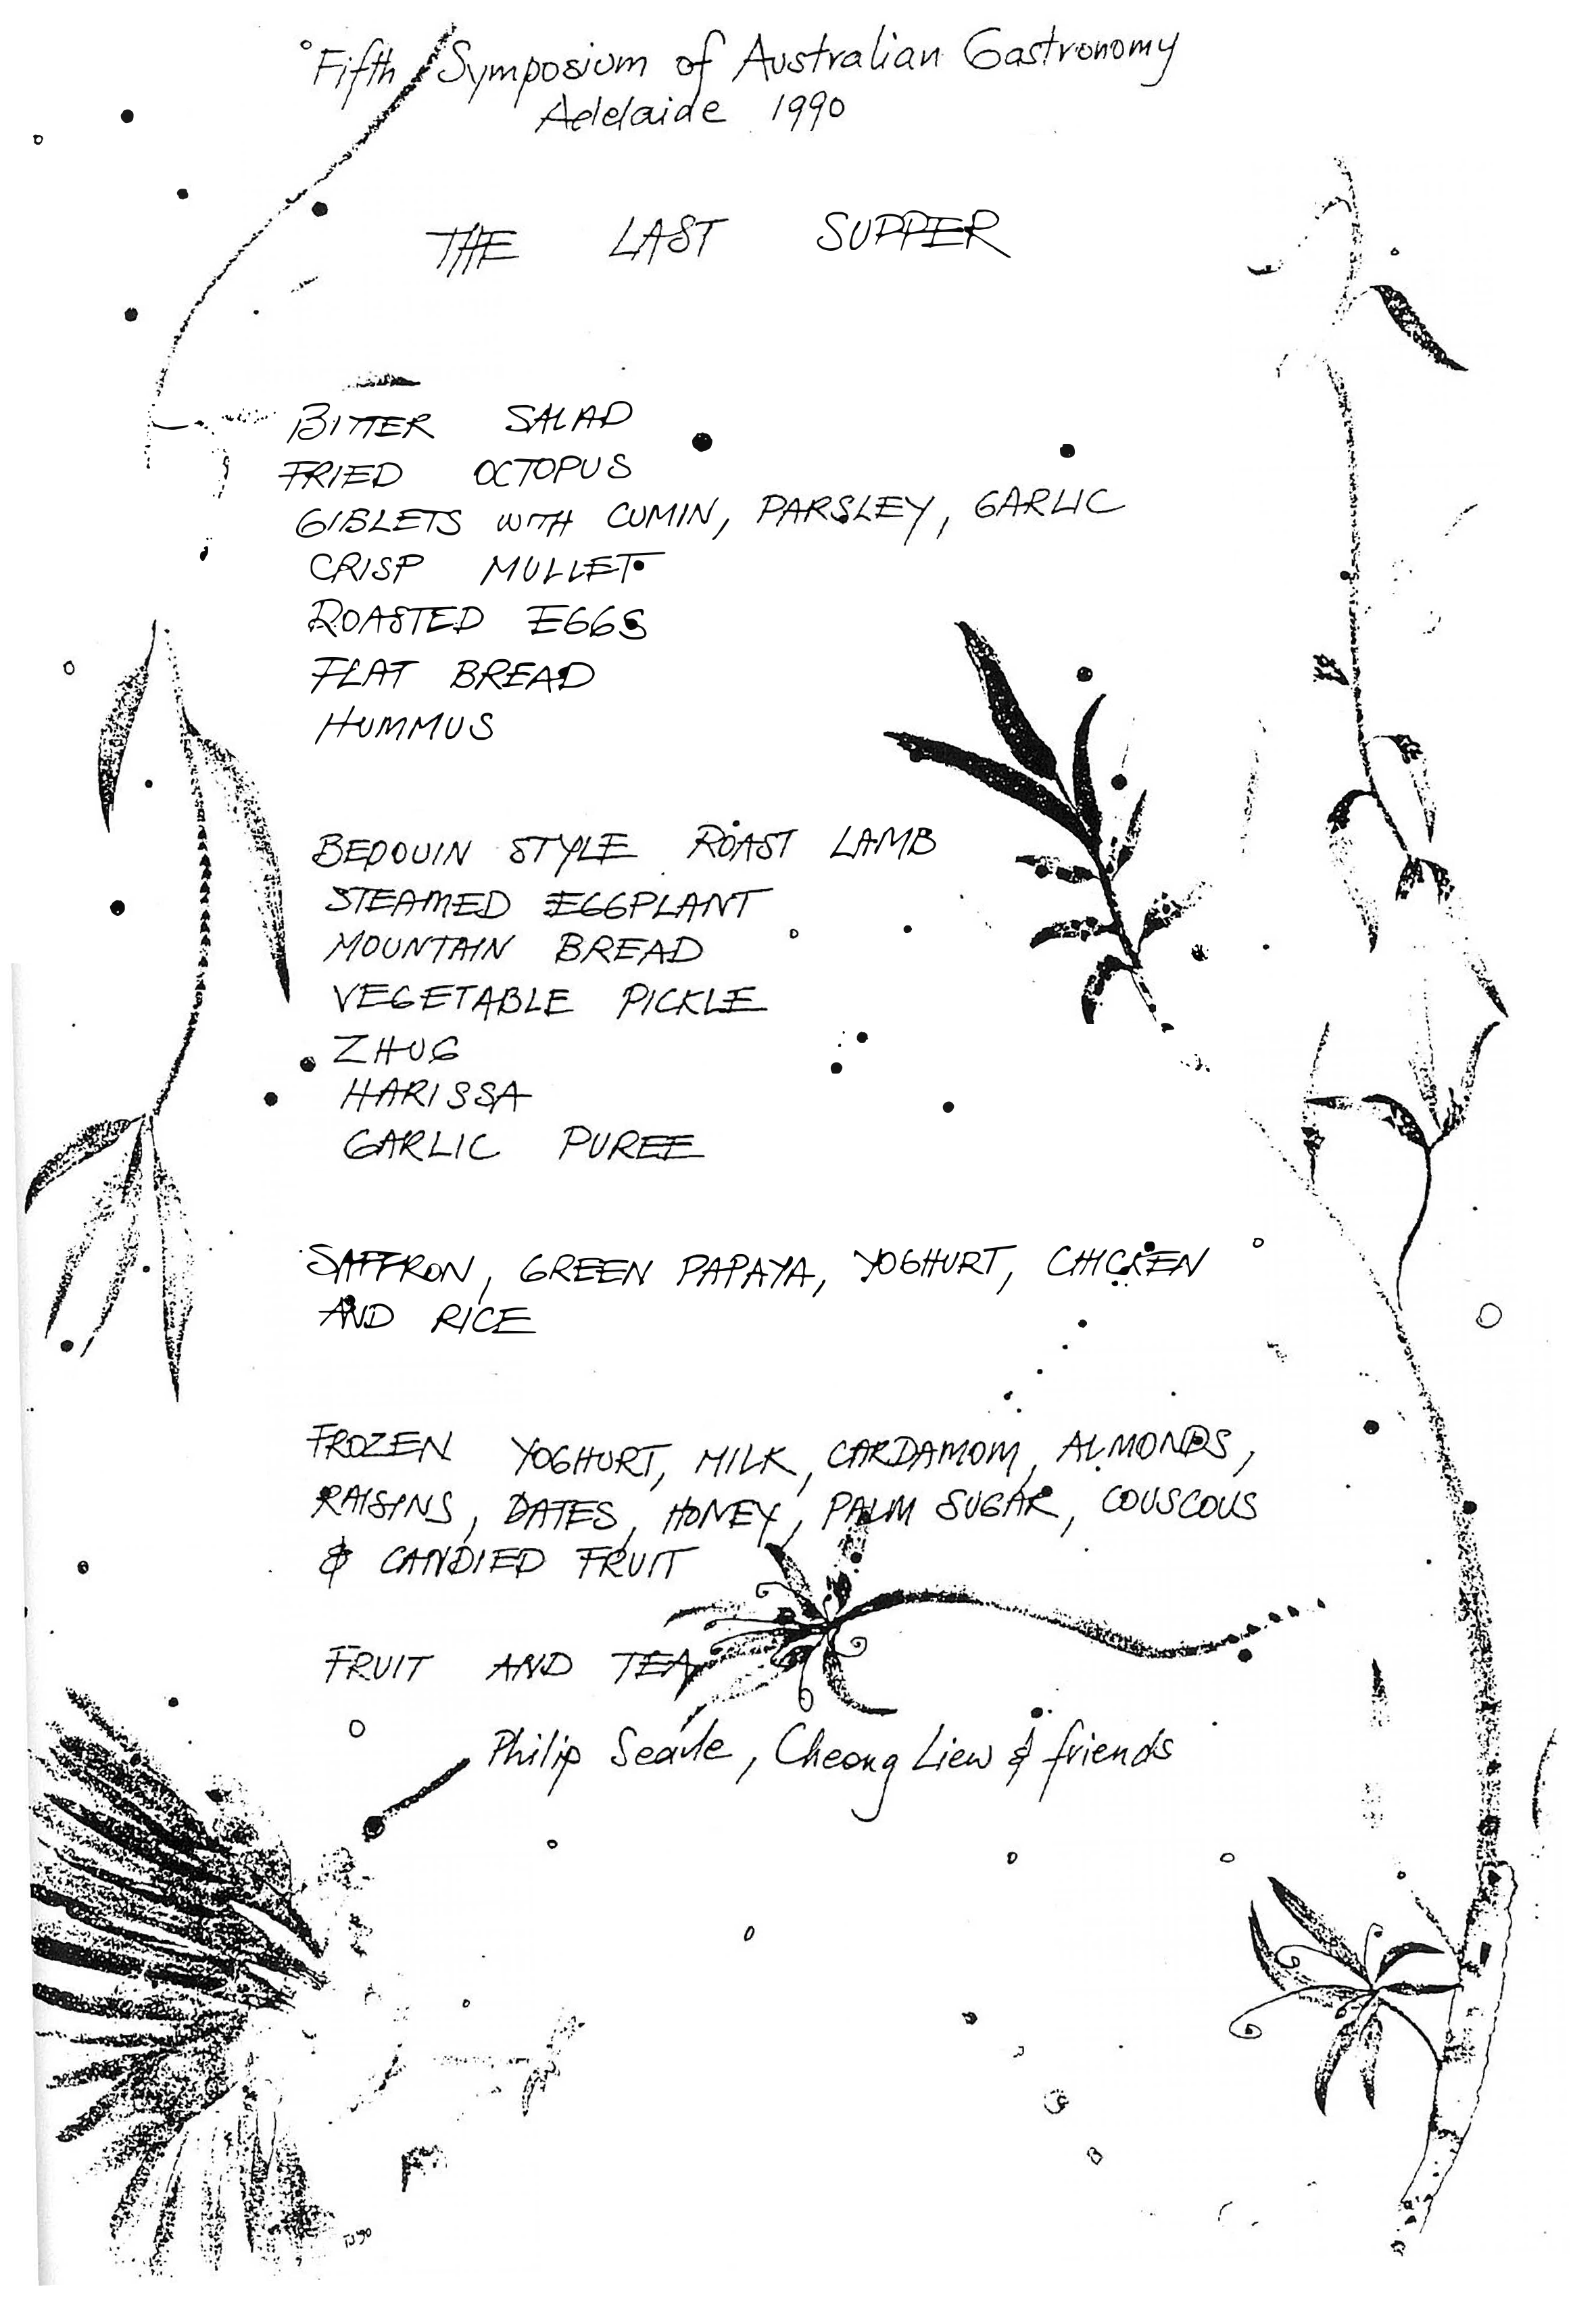 Fifth Symposium of Australian Gastronomy
Adelaide 1990
THE LAST SUPPER
BITTER SALAD
FRIED OCTOPUS
GIBLETS WITH CUMIN, PARSLEY, GARLIC
CRISP MULLET
ROASTED EGGS
FLAT BREAD
HUMMUS
BEDOUIN STYLE ROAST LAMB
STEAMED EGGPLANT
MOUNTAIN BREAD
VEGETABLE PICKLE
ZHUG
HARISSA
GARLIC PUREE
SAFFRON, GREEN PAPAYA, YOGHURT, CHICKEN
AND RICE
FROZEN YOGHURT, MILK, CARDAMOM, ALMONDS,
RAISINS, DATES, HONEY, PALM SUGAR, COUSCOUS
& CANDIED FRUIT
FRUIT AND TEA
Philip Searle, Cheong Liew & friends